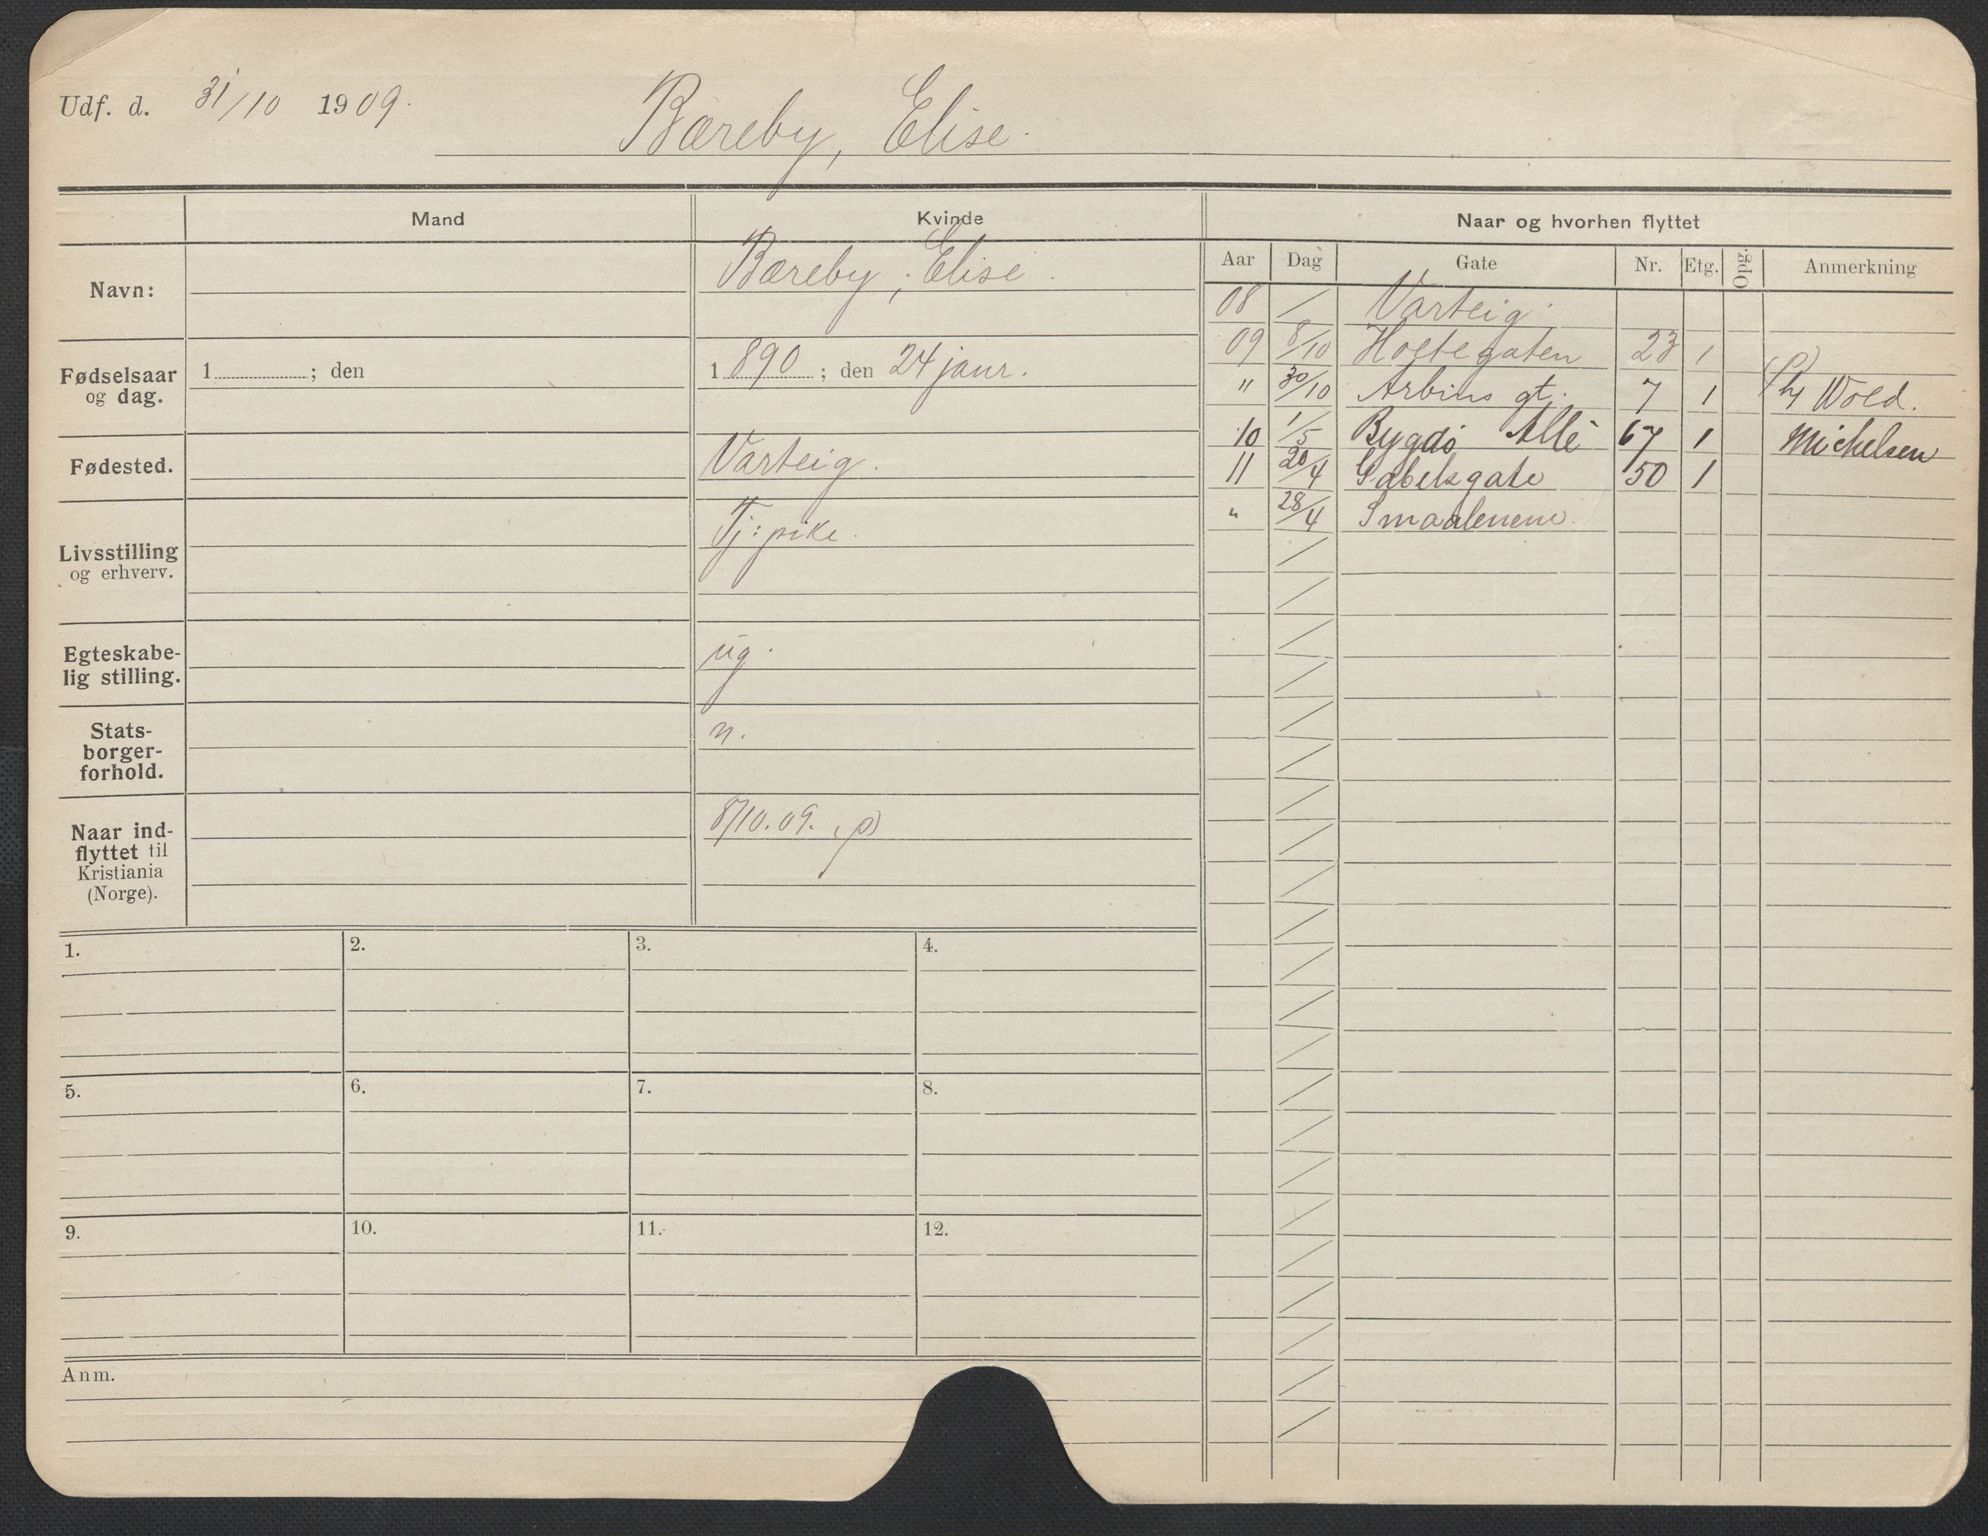 Udf. d. 31/10 1909.
Bæreby, Elise.
Mand
Kvinde
Naar og hvorhen flyttet
Aar Dag Gate Nr. Etg. Opg. Anmerkning
Navn:
Bæreby, Elise.
Fødselsaar
og dag.
1 ; den
1 890 ; den 24 janr.
Fødested.
Varteig.
Livsstilling
og erhverv.
Tj: pike.
Egteskabe-
lig stilling.
ug.
Stats-
borger-
forhold.
n.
Naar ind-
flyttet til
Kristiania
(Norge).
8/10.09. (p)
08 / Varteig.
09 8/10 Holtegaten 23 1
" 30/10 Arbins gt. 7 1 Wold.
10 1/5 Bygdö Allè 67 1 Michelsen
11 20/4 Gabelsgate 50 1
" 28/4 Smaalenene.
1. 2. 3. 4.
5. 6. 7. 8.
9. 10. 11. 12.
Anm.